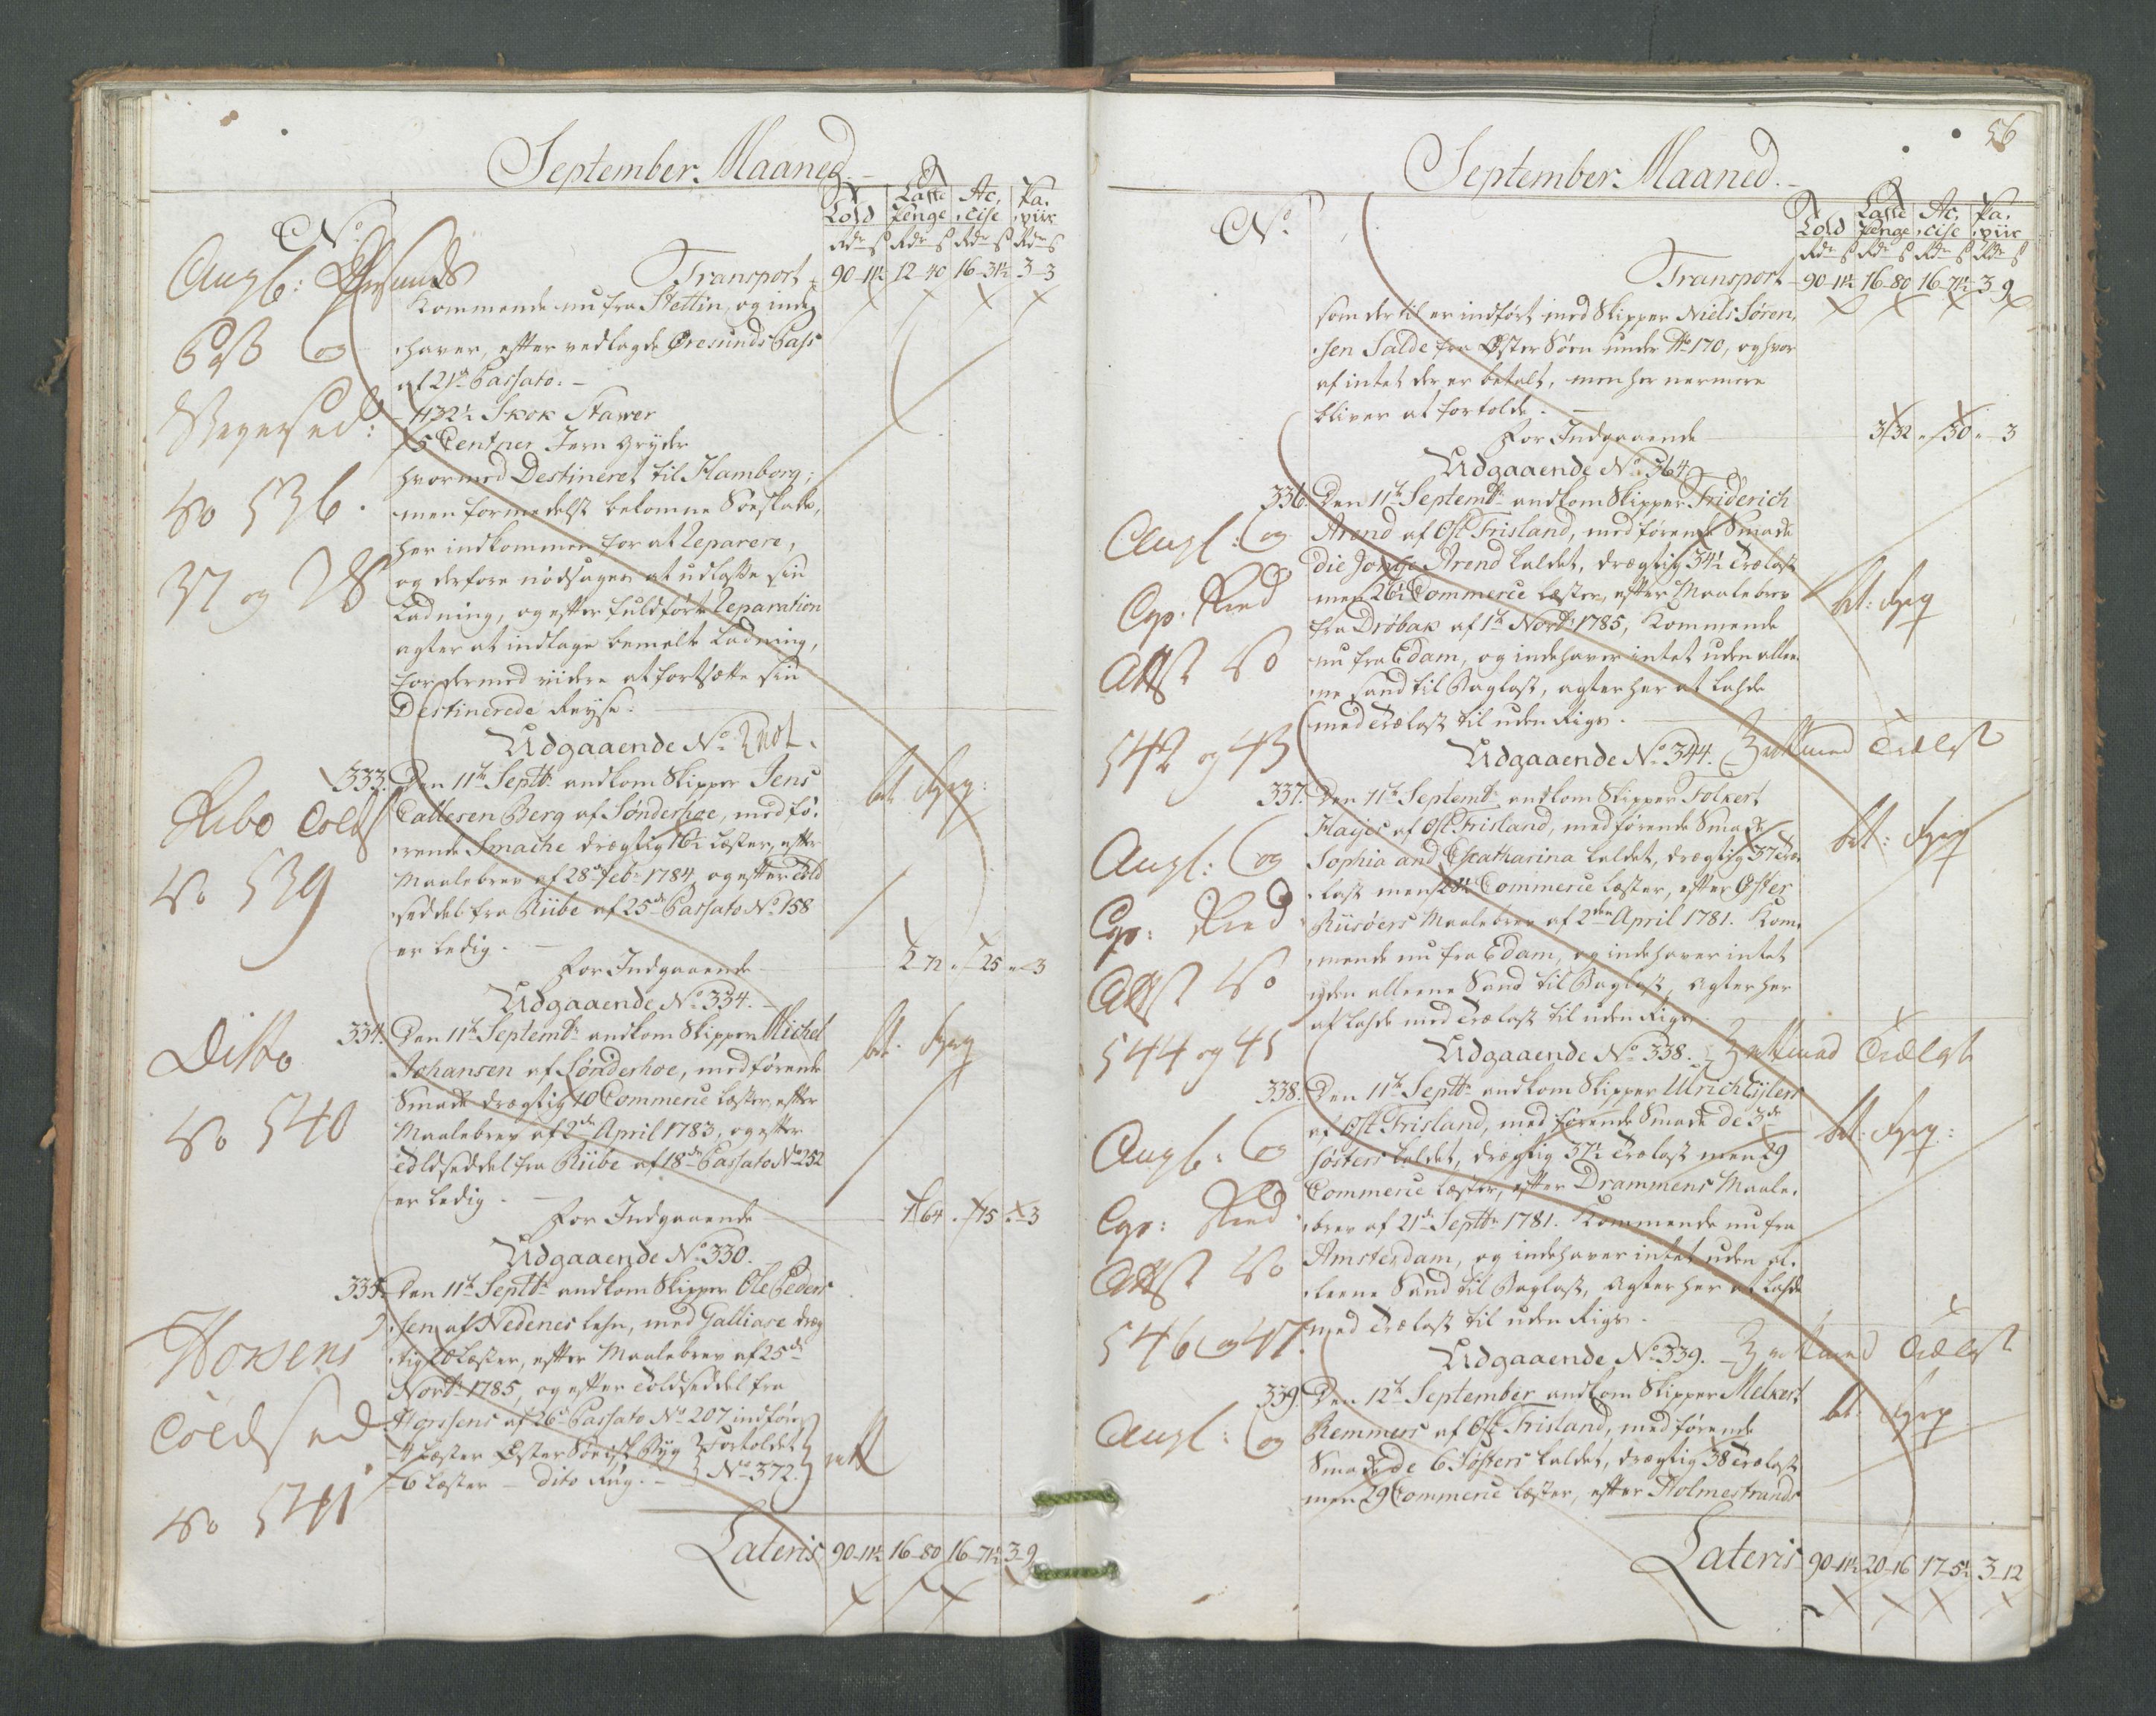 September Maaned.
Told Laste penge Ac, cise Pa, piir
No.
Rdr ß Rdr ß Rdr ß Rdr ß
Transport 90-11½ 12-40 16-31½ 3-3
Kommende nu fra Stettin, og inde
haver, efter vedlagde Øresunds Pass
af 21de Passato.
432½ Skok Stawer
15 Centner Jern Gryder
hvormed Destineret til Hamborg;
men formedelst bekomne Søeskade,
her indkommen for at Reparere,
og derfore nødsages at udlosse sin
Ladning, og efter fuldført Reparation
agter at indtage bemelte Ladning,
for dermed viidere at fortsætte sin
Destinerede Reyse.
Udgaaende No
No 536.
37 og 38
333. Den 11te Septbr ankom Skipper Jens
Callesen Berg af Sønderhoe, med fø,
rende Smache drægtig 16½ Læster, efter
Maalebrev af 28de Febr 1784, og efter Told
seddel fra Riibe af 25de Passato No 158
er ledig.
For Indgaaende 2-72 " -25 " -3
Udgaaende No 334.
Ribe Tolds
No 539
334. Den 11te Septembr ankom Skipper Michel
Johansen af Sønderhoe, medførende
Smack drægtig 10 Commerce Læster, efter
Maalebrev af 2den April 1783, og efter
Toldseddel fra Riibe af 18de Passato No 252
er ledig.
For Indgaaende 1-64 " -15 " -3
Udgaaende No 330.
Ditto
No 540
335. Den 11te Septbr ankom Skipper Ole Peder
sen af Nedenes Lehn, med Galliace dræg
tig 20 Læster, efter Maalebrev af 25de
Novbr 1785, og efter Toldseddel fra
Horssens af 26de Passato No 207 indført
4 Læster Østersøeisk Byg Fortoldet
6 Læster dito Rug. No 372.
Horsens
Toldsed
No 541
Lateris 90-11½ 16-80 16-71½ 3-9

56
September Maaned.
Told Laste penge Ac, cise Pa, piir
No.
Rdr ß Rdr ß Rdr ß Rdr ß
Transport 90-11½ 16-80 16-71½ 3-9
som dertil er indført med Skipper Niels Søren,
sen Salde fra Øster Søen under No 170, og hvor
af intet der er betalt, men her nermere
bliver at fortolde.
For Indgaaende 3-32 " -30 " -3
Udgaaende No 364
336. Den 11te Septembr ankom Skipper Friderich
Arend af Ost Frisland, medførende Smack
die Jonge Arend kaldet, drægtig 34½ Trælast
men 26½ Commerce Læster, efter Maalebrev
fra Drøbak af 1te Novbr 1785, Kommende
nu fra Edam, og indehaver intet uden allee,
ne Sand til Baglast, agter her at lahde
med Trælast til uden Rigs.
Udgaaende No 344.
Attst No
542 og 43
337. Den 11te Septembr ankom Skipper Folkert
Hayes af Ost Frisland, medførende Smack
Sophia and Catharina kaldet, drægtig 37 Træ
last men 28½ Commerce Læster, efter Øster
Riisøers Maalebrev af 2den April 1781. Kom,
mende nu fra Edam, og indehaver intet
uden alleene Sand til Baglast, Agter her
at lahde med Trælast til uden Rigs
Udgaaende No 338.
Attst No
544 og 45
338. Den 11te Septbr ankom Skipper Ulrich Eylers
af Ost Frisland, med førende Smack de 3de
Søsters kaldet, drægtig 37½ Trælast men 29
Commerce Læster, efter Drammens Maale,
brev af 21de Septbr 1781. Kommende nu fra
Amsterdam, og indehaver intet uden al,
leene Sand til Baglast, Agter her at lahde
med Trælast til uden Rigs.
Udgaaende No 339.
Attst No
546 og 47.
339. Den 12te September ankom Skipper Melkert
Remmers af Ost Frisland, medførende
Smack de 6 Søsters kaldet, drægtig 38 Trælast
men 29 Commerce Læster, efter Holmestrands
Lateris 90-11½ 20-16 17-5½ 3-12